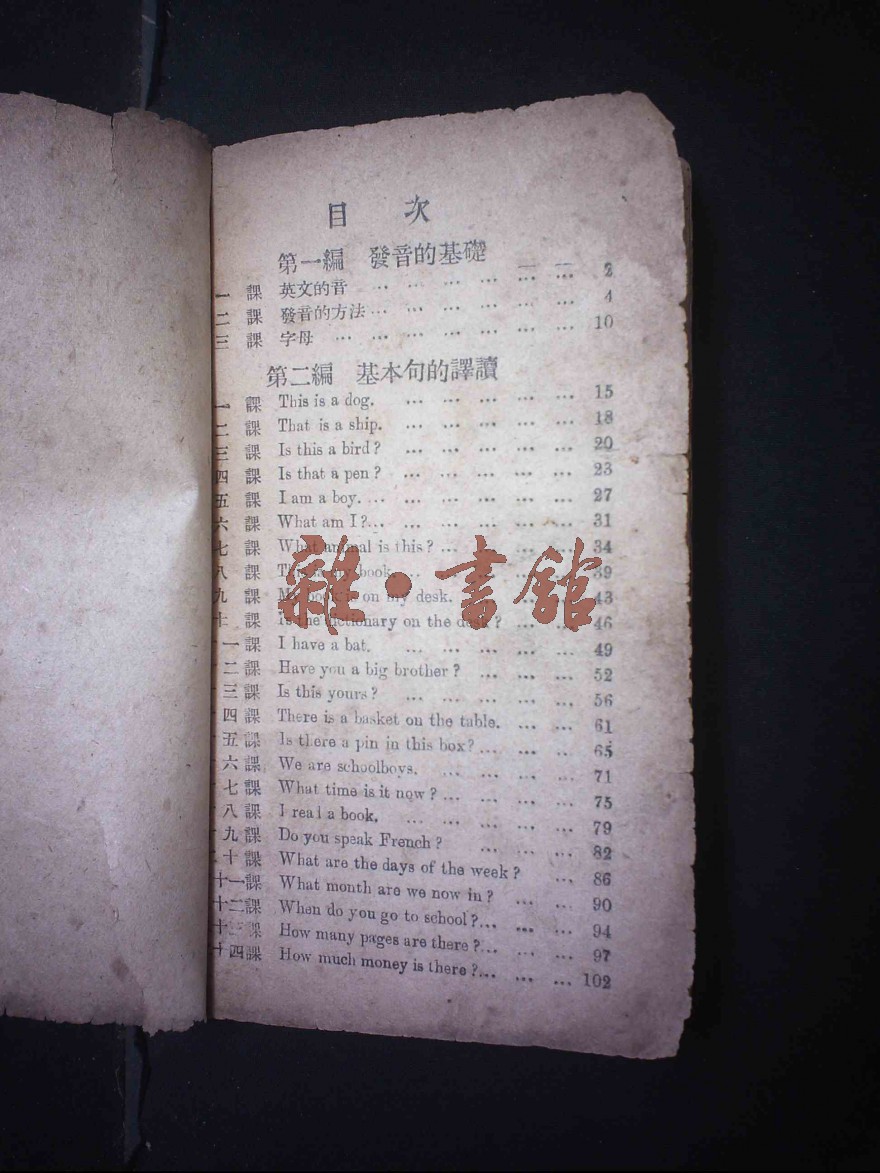 目 次
第一編 發音的基礎
一 課 英文的音 … … … … … … 2
二 課 發音的方法 … … … … … … 4
三 課 字母 … … … … … … … 10
第二編 基本句的譯讀
一 課 This is a dog. … … … … … 15
二 課 That is a ship. … … … … … 18
三 課 Is this a bird? … … … … … 20
四 課 Is that a pen? … … … … … 23
五 課 I am a boy. … … … … … … 27
六 課 What am I?… … … … … … 31
七 課 What animal is this? … … … … 34
八 課 This is my book. … … … … 39
九 課 My book is on my desk. … … … 43
十 課 Is the dictionary on the desk? … … 46
一課 I have a bat. … … … … … 49
二課 Have you a big brother? … … … 52
三課 Is this yours? … … … … … 56
四課 There is a basket on the table. … … 61
五課 Is there a pin in this box? … … … 65
六課 We are schoolboys. … … … … 71
七課 What time is it now? … … … … 75
八課 I read a book. … … … … … 79
九課 Do you speak French? … … … 82
十課 What are the days of the week? … 86
十一課 What month are we now in? … … 90
十二課 When do you go to school?… … … 94
十三課 How many pages are there?… … … 97
十四課 How much money is there?… … … 102
雜·書館